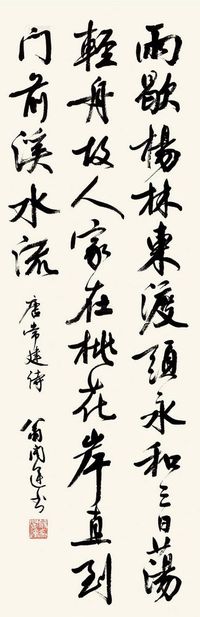 雨歇楊林東渡頭永和三日蕩
輕舟故人家在桃花岸直到
门前溪水流
唐常建诗 翁闿运书